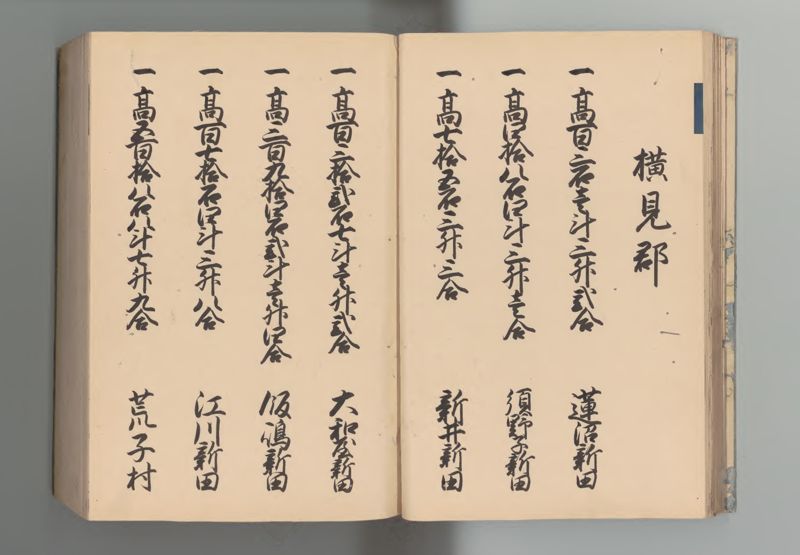 横見郡
一高百三石壱斗三升弐合 蓮沼新田
一高四拾八石四斗三升壱合 須野子新田
一高七拾五石三升三合 新井新田
一高百三拾弐石七斗壱升弐合 大和屋新田
一高三百九拾四石弐斗壱升四合 飯嶋新田
一高百七拾石四斗三升八合 江川新田
一高五百拾八石八斗七升九合 荒子村